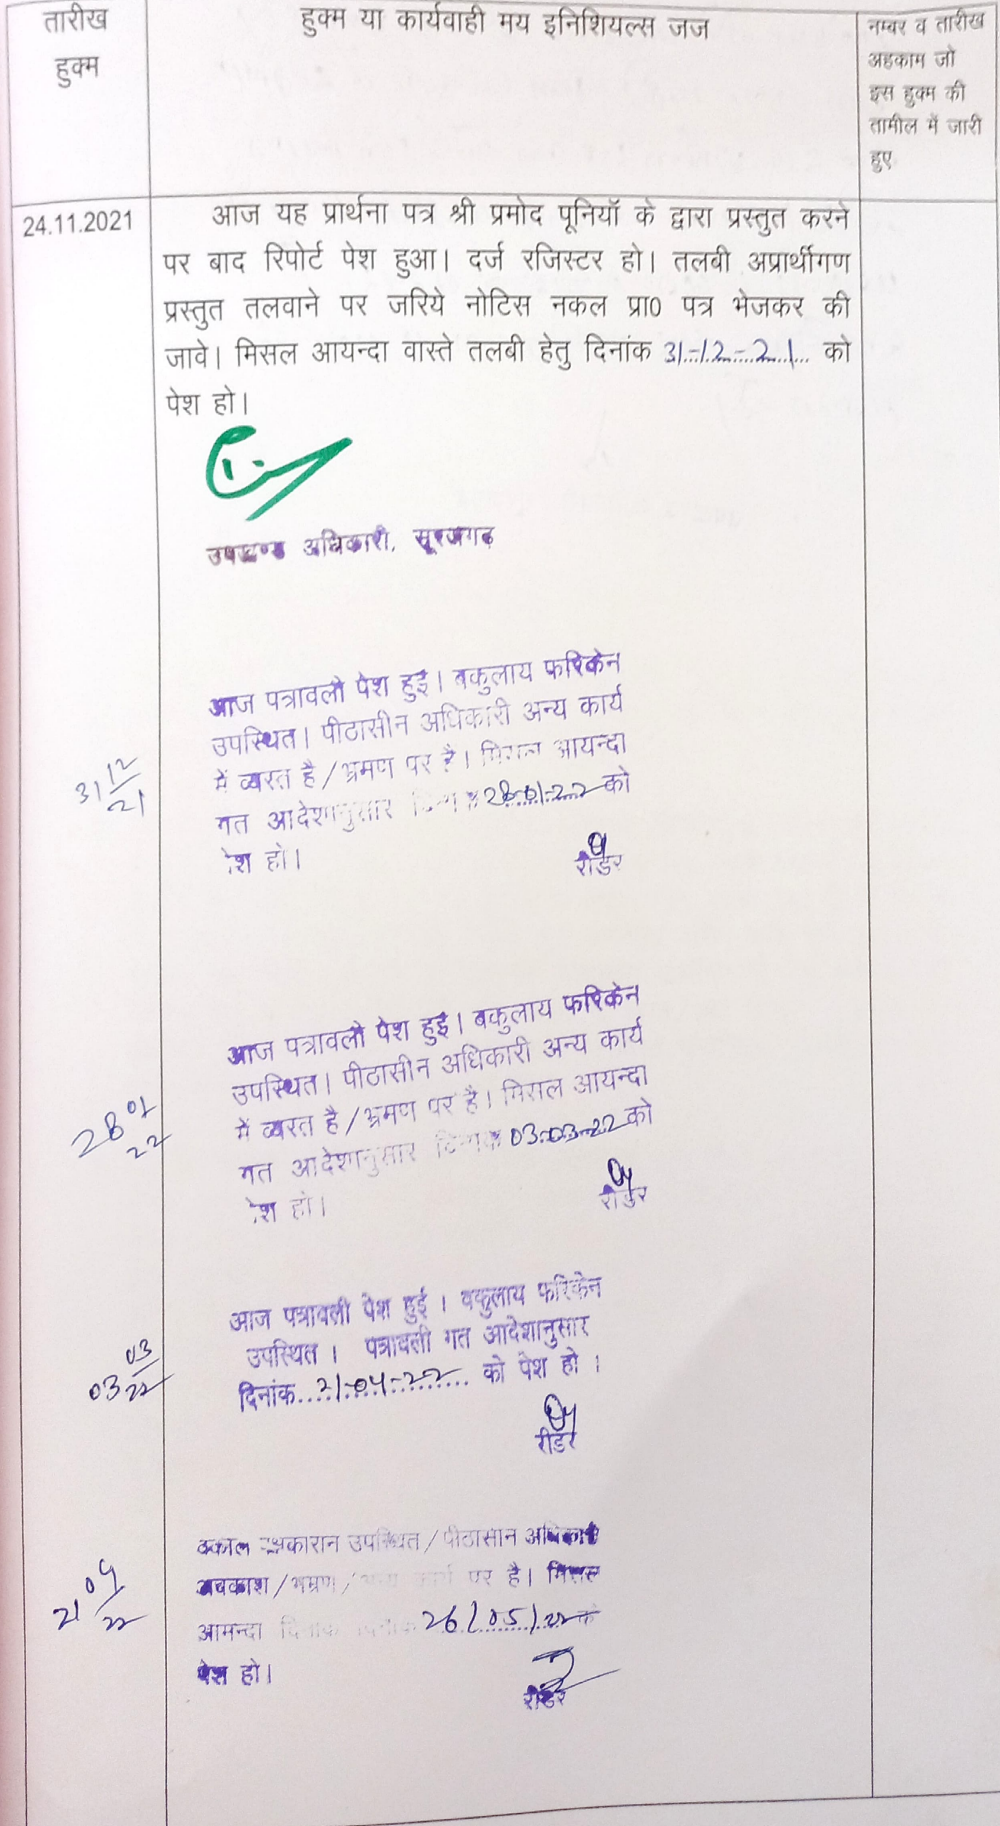 तारीख
हुक्म
हुक्म या कार्यवाही मय इनिशियल्स जज
नम्बर व तारीख
अहकाम जो
इस हुक्म की
तामील में जारी
हुए
24.11.2021
आज यह प्रार्थना पत्र श्री प्रमोद पूनियॉ के द्वारा प्रस्तुत करने
पर बाद रिपोर्ट पेश हुआ। दर्ज रजिस्टर हो। तलबी अप्रार्थीगण
प्रस्तुत तलवाने पर जरिये नोटिस नकल प्रा0 पत्र भेजकर की
जावे। मिसल आयन्दा वास्ते तलबी हेतु दिनांक 31-12-21 को
पेश हो।
उपखण्ड अधिकारी, सूरजगढ़
31 12/21
आज पत्रावली पेश हुई। वकुलाय फरिकेन
उपस्थित। पीठासीन अधिकारी अन्य कार्य
में व्यस्त है/भ्रमण पर है। मिसल आयन्दा
गत आदेशानुसार 28-01-22 को
पेश हो।
रीडर
28 01/22
आज पत्रावली पेश हुई। वकुलाय फरिकेन
उपस्थित। पीठासीन अधिकारी अन्य कार्य
में व्यस्त है/भ्रमण पर है। मिसल आयन्दा
गत आदेशानुसार दिनांक 03-03-22 को
पेश हो।
रीडर
03 03/22
आज पत्रावली पेश हुई। वकुलाय फरिकेन
उपस्थित। पत्रावली गत आदेशानुसार
दिनांक 21-04-22 को पेश हो।
रीडर
21 04/22
उपस्थित/पीठासीन अधिकारी
अवकाश/भ्रमण/अन्य कार्य पर है। मिसल
आयन्दा दिनांक 26/05/22 को
पेश हो।
रीडर